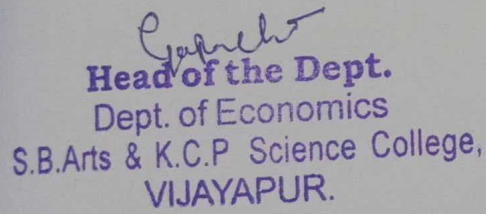 Head of the Dept.
Dept. of Economics
S.B.Arts & K.C.P Science College,
VIJAYAPUR.